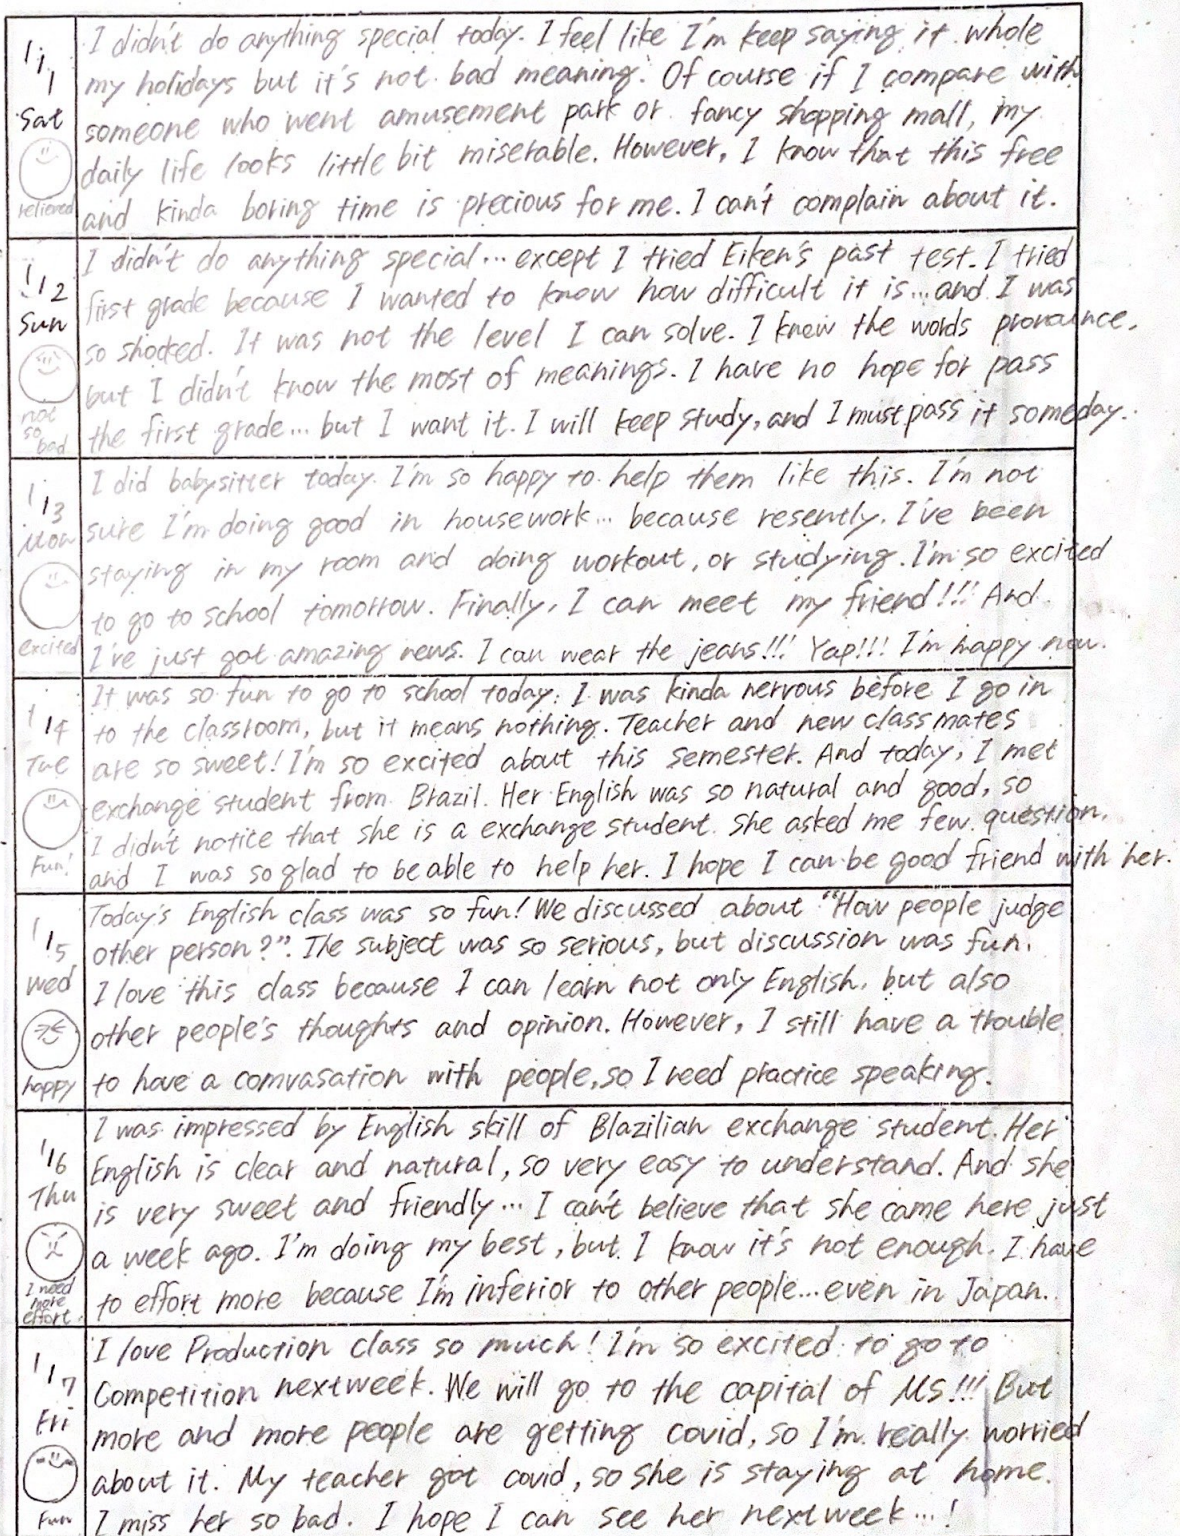 1/1
Sat
relieved
I didn't do anything special today. I feel like I'm keep saying it whole
my holidays but it's not bad meaning. Of course if I compare with
someone who went amusement park or fancy shopping mall, my
daily life looks little bit miserable. However, I know that this free
and kinda boring time is precious for me. I can't complain about it.
1/2
Sun
not
so
bad
I didn't do anything special... except I tried Eiken's past test. I tried
first grade because I wanted to know how difficult it is... and I was
so shocked. It was not the level I can solve. I knew the words pronounce,
but I didn't know the most of meanings. I have no hope for pass
the first grade... but I want it. I will keep study, and I must pass it someday.
1/3
Mon
excited
I did babysitter today. I'm so happy to help them like this. I'm not
sure I'm doing good in housework... because resently, I've been
staying in my room and doing workout, or studying. I'm so excited
to go to school tomorrow. Finally, I can meet my friend!!! And
I've just got amazing news. I can wear the jeans!!! Yap!!! I'm happy now.
1/4
Tue
Fun!
It was so fun to go to school today. I was kinda nervous before I go in
to the classroom, but it means nothing. Teacher and new classmates
are so sweet! I'm so excited about this semester. And today, I met
exchange student from Brazil. Her English was so natural and good, so
I didn't notice that she is a exchange student. She asked me few question,
and I was so glad to be able to help her. I hope I can be good friend with her.
1/5
Wed
happy
Today's English class was so fun! We discussed about "How people judge
other person?". The subject was so serious, but discussion was fun.
I love this class because I can learn not only English, but also
other people's thoughts and opinion. However, I still have a trouble
to have a comvasation with people, so I need practice speaking.
1/6
Thu
I need
more
effort.
I was impressed by English skill of Blazilian exchange student. Her
English is clear and natural, so very easy to understand. And she
is very sweet and friendly... I can't believe that she came here just
a week ago. I'm doing my best, but I know it's not enough. I have
to effort more because I'm inferior to other people... even in Japan.
1/7
Fri
Fun
I love Production class so much! I'm so excited to go to
Competition nextweek. We will go to the capital of MS!!! But
more and more people are getting covid, so I'm really worried
about it. My teacher got covid, so she is staying at home.
I miss her so bad. I hope I can see her nextweek...!